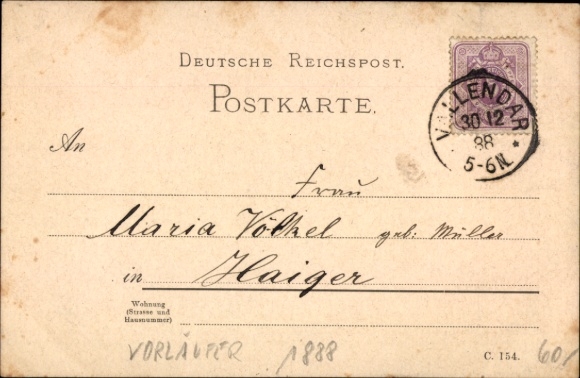 DEUTSCHE REICHSPOST.
POSTKARTE.
VALLENDAR
30 12
88
5-6N.
An
Frau
Maria Völkel geb: Müller
in Haiger
Wohnung
(Strasse und
Hausnummer)
VORLÄUFER 1888
C. 154.
60/